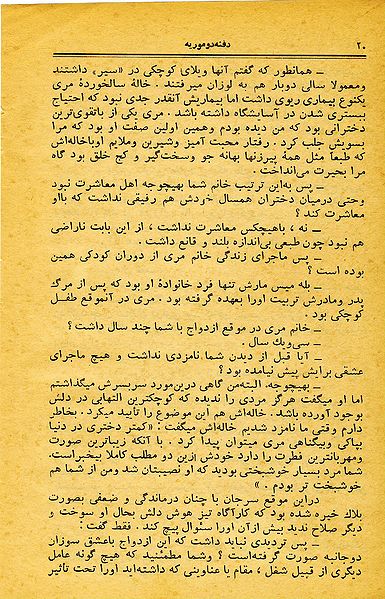 ۲۰ دفنه دوموریه
ـ همانطور که گفتم آنها ویلای کوچکی در «سیر» داشتند
ومعمولا سالی دوبار هم به لوزان میرفتند . خالهٔ سالخوردهٔ مری
یکنوع بیماری ریوی داشت اما بیماریش آنقدر جدی نبود که احتیاج
ببستری شدن در آسایشگاه داشته باشد . مری یکی از باتقوی‌ترین
دخترانی بود که من دیده بودم وهمین اولین صفت او بود که مرا
بسویش جلب کرد . رفتار محبت آمیز وشیرین وملایم اوباخاله‌اش
که طبعاً مثل همهٔ پیرزنها بهانه جو وسخت‌گیر و کج خلق بود گاه
مرا بحیرت می‌انداخت .
ـ پس به‌این ترتیب خانم شما بهیچوجه اهل معاشرت نبود
وحتی درمیان دختران همسال خردش هم رفیقی نداشت که بااو
معاشرت کند ؟
ـ نه ، باهیچکس معاشرت نداشت ، از این بابت ناراضی
هم نبود چون طبعی بی‌اندازه بلند و قانع داشت .
ـ پس ماجرای زندگی خانم مری از دوران کودکی همین
بوده است ؟
ـ بله میس مارش تنها فرد خانوادهٔ او بود که پس از مرگ
پدر ومادرش تربیت اورا بعهده گرفته بود . مری در آنموقع طفل
کوچکی بود .
ـ خانم مری در موقع ازدواج با شما چند سال داشت ؟
ـ سی‌ویك سال .
ـ آیا قبل از دیدن شما نامزدی نداشت و هیچ ماجرای
عشقی برایش پیش نیامده بود ؟
ـ بهیچوجه، البته‌من گاهی دراین‌مورد سربسرش میگذاشتم
اما او میگفت هرگز مردی را ندیده که کوچکترین التهابی در دلش
بوجود آورده باشد . خاله‌اش هم این موضوع را تأیید میکرد . بخاطر
دارم وقتی ما نامزد شدیم خاله‌اش میگفت : «کمتر دختری در دنیا
بپاکی وبیگناهی مری میتوان پیدا کرد . با آنکه زیباترین صورت
ومهربانترین فطرت را دارد خودش ازین دو مطلب کاملا بیخبراست،
شما مرد بسیار خوشبختی بودید که او نصیبتان شد ومن از شما هم
خوشبخت تر بودم . »
دراین موقع سرجان با چنان درماندگی و ضعفی بصورت
بلاك خیره شده بود که کارآگاه تیز هوش دلش بحال او سوخت و
دیگر صلاح ندید بیش ازآن اورا سئوال پیچ کند . فقط گفت :
ـ پس تردیدی نباید داشت که این ازدواج باعشق سوزان
دوجانبه صورت گرفته‌است ؟ وشما مطمئنید که هیچ گونه عامل
دیگری از قبیل شغل ، مقام یا عناوینی که داشته‌اید اورا تحت تأثیر